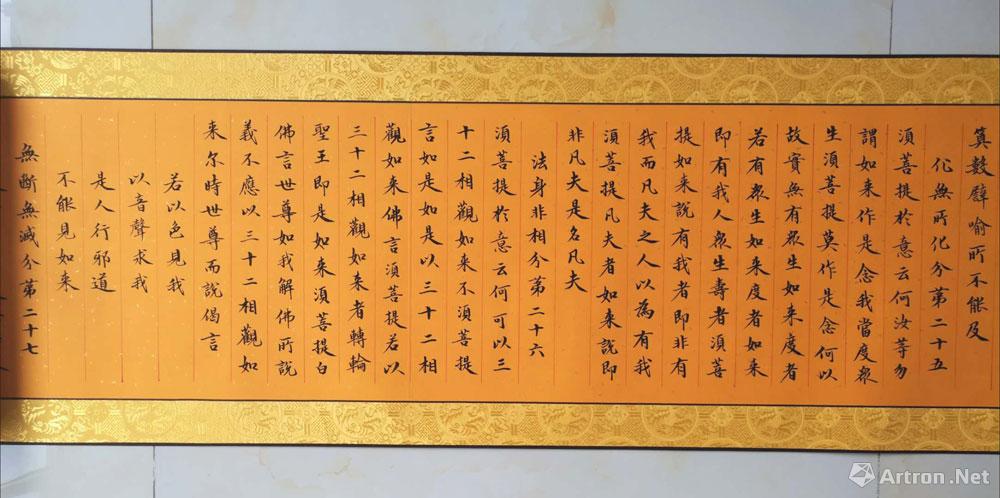 算數譬喻所不能及
化無所化分第二十五
須菩提於意云何汝等勿
謂如来作是念我當度眾
生須菩提莫作是念何以
故實無有眾生如来度者
若有眾生如来度者如来
即有我人眾生壽者須菩
提如来說有我者即非有
我而凡夫之人以為有我
須菩提凡夫者如来說即
非凡夫是名凡夫
法身非相分第二十六
須菩提於意云何可以三
十二相觀如来不須菩提
言如是如是以三十二相
觀如来佛言須菩提若以
三十二相觀如来者轉輪
聖王即是如来須菩提白
佛言世尊如我解佛所說
義不應以三十二相觀如
来尔時世尊而說偈言
若以色見我
以音聲求我
是人行邪道
不能見如来
無斷無滅分第二十七
Artron.Net